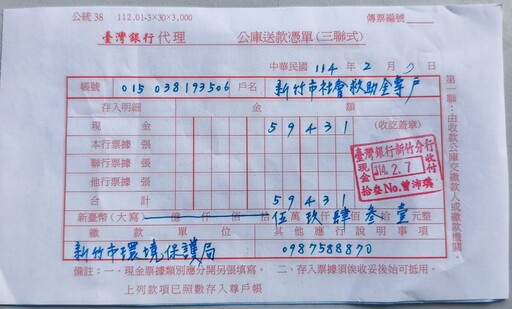 公統38 112.01-3×30×3,000
傳票編號
臺灣銀行代理 公庫送款憑單(三聯式)
中華民國 114年 2月 7日
帳號 015038193506 戶名 新竹市社會救助金專戶
存入明細 金額
現金 59431 (收訖蓋章)
本行票據 張
聯行票據 張
他行票據 張
合計 59431
臺灣銀行新竹分行
現金 114.2.7 收付
拾叁No.曾沛琪
新臺幣(大寫) 億仟佰拾萬仟佰拾元整 伍玖肆叁壹
繳款單位 其他應行說明事項
新竹市環境保護局 0987588870
備註:一、現金票據類別應分開另張填寫。 二、存入票據須俟收妥後始可抵用。
上列款項已照數存入尊戶帳
第一聯:由收款公庫交繳款人或繳款機關。